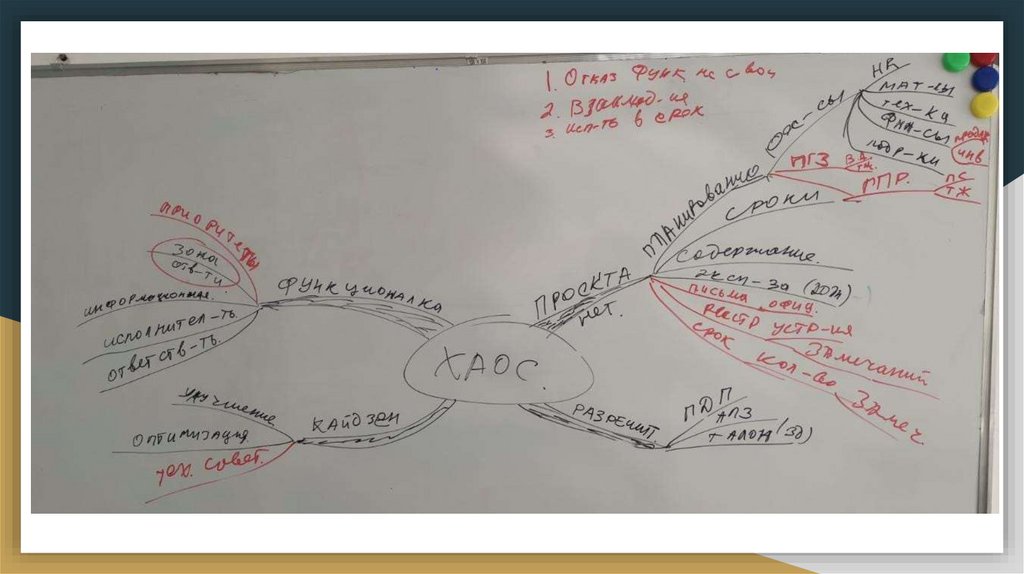 1. Отказ функ не свои
2. Взаимод-ия
3. исп-ть в срок
HR
МАТ-лы
тех-ка
фин-сы
подр-ки
рес-сы
ПГЗ
ППР.
ПС
ТЖ
ПЛАНИРОВАНИЮ
СРОКИ
Содержание.
эксп-за (20%)
письма офиц.
реестр устр-ия
ЗАмечаний
срок кол-во
ЗАмеч.
ПРОЕКТА
нет.
ПРИОРИТЕТЫ
Зона
отв-ти
информационная.
исполнител-ть
ответств-ть.
ФУНКЦИОНАЛКА
ХАОС.
улучшение
оптимизация
тех. совет.
КАЙДЗЕН
РАЗРЕШИТ
ПДП
АПЗ